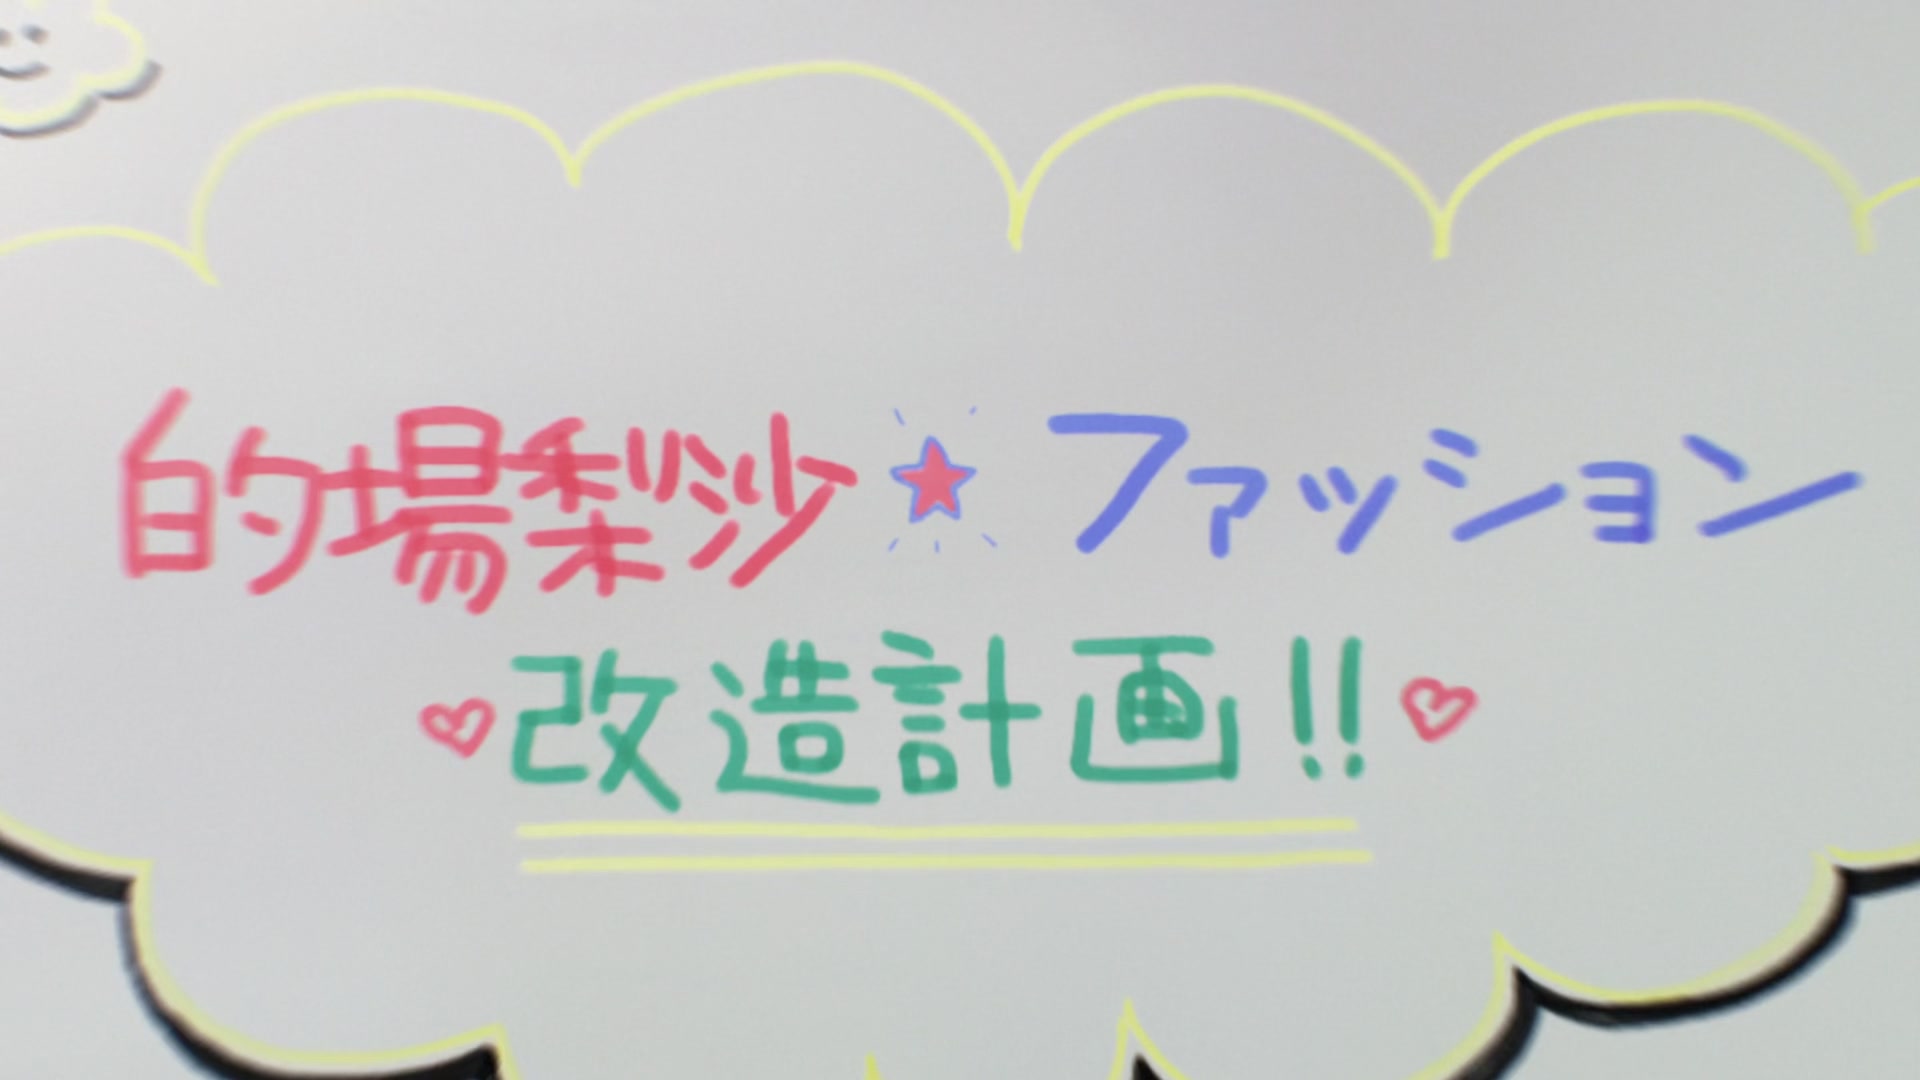 的場梨沙★ファッション
♥改造計画!!♥